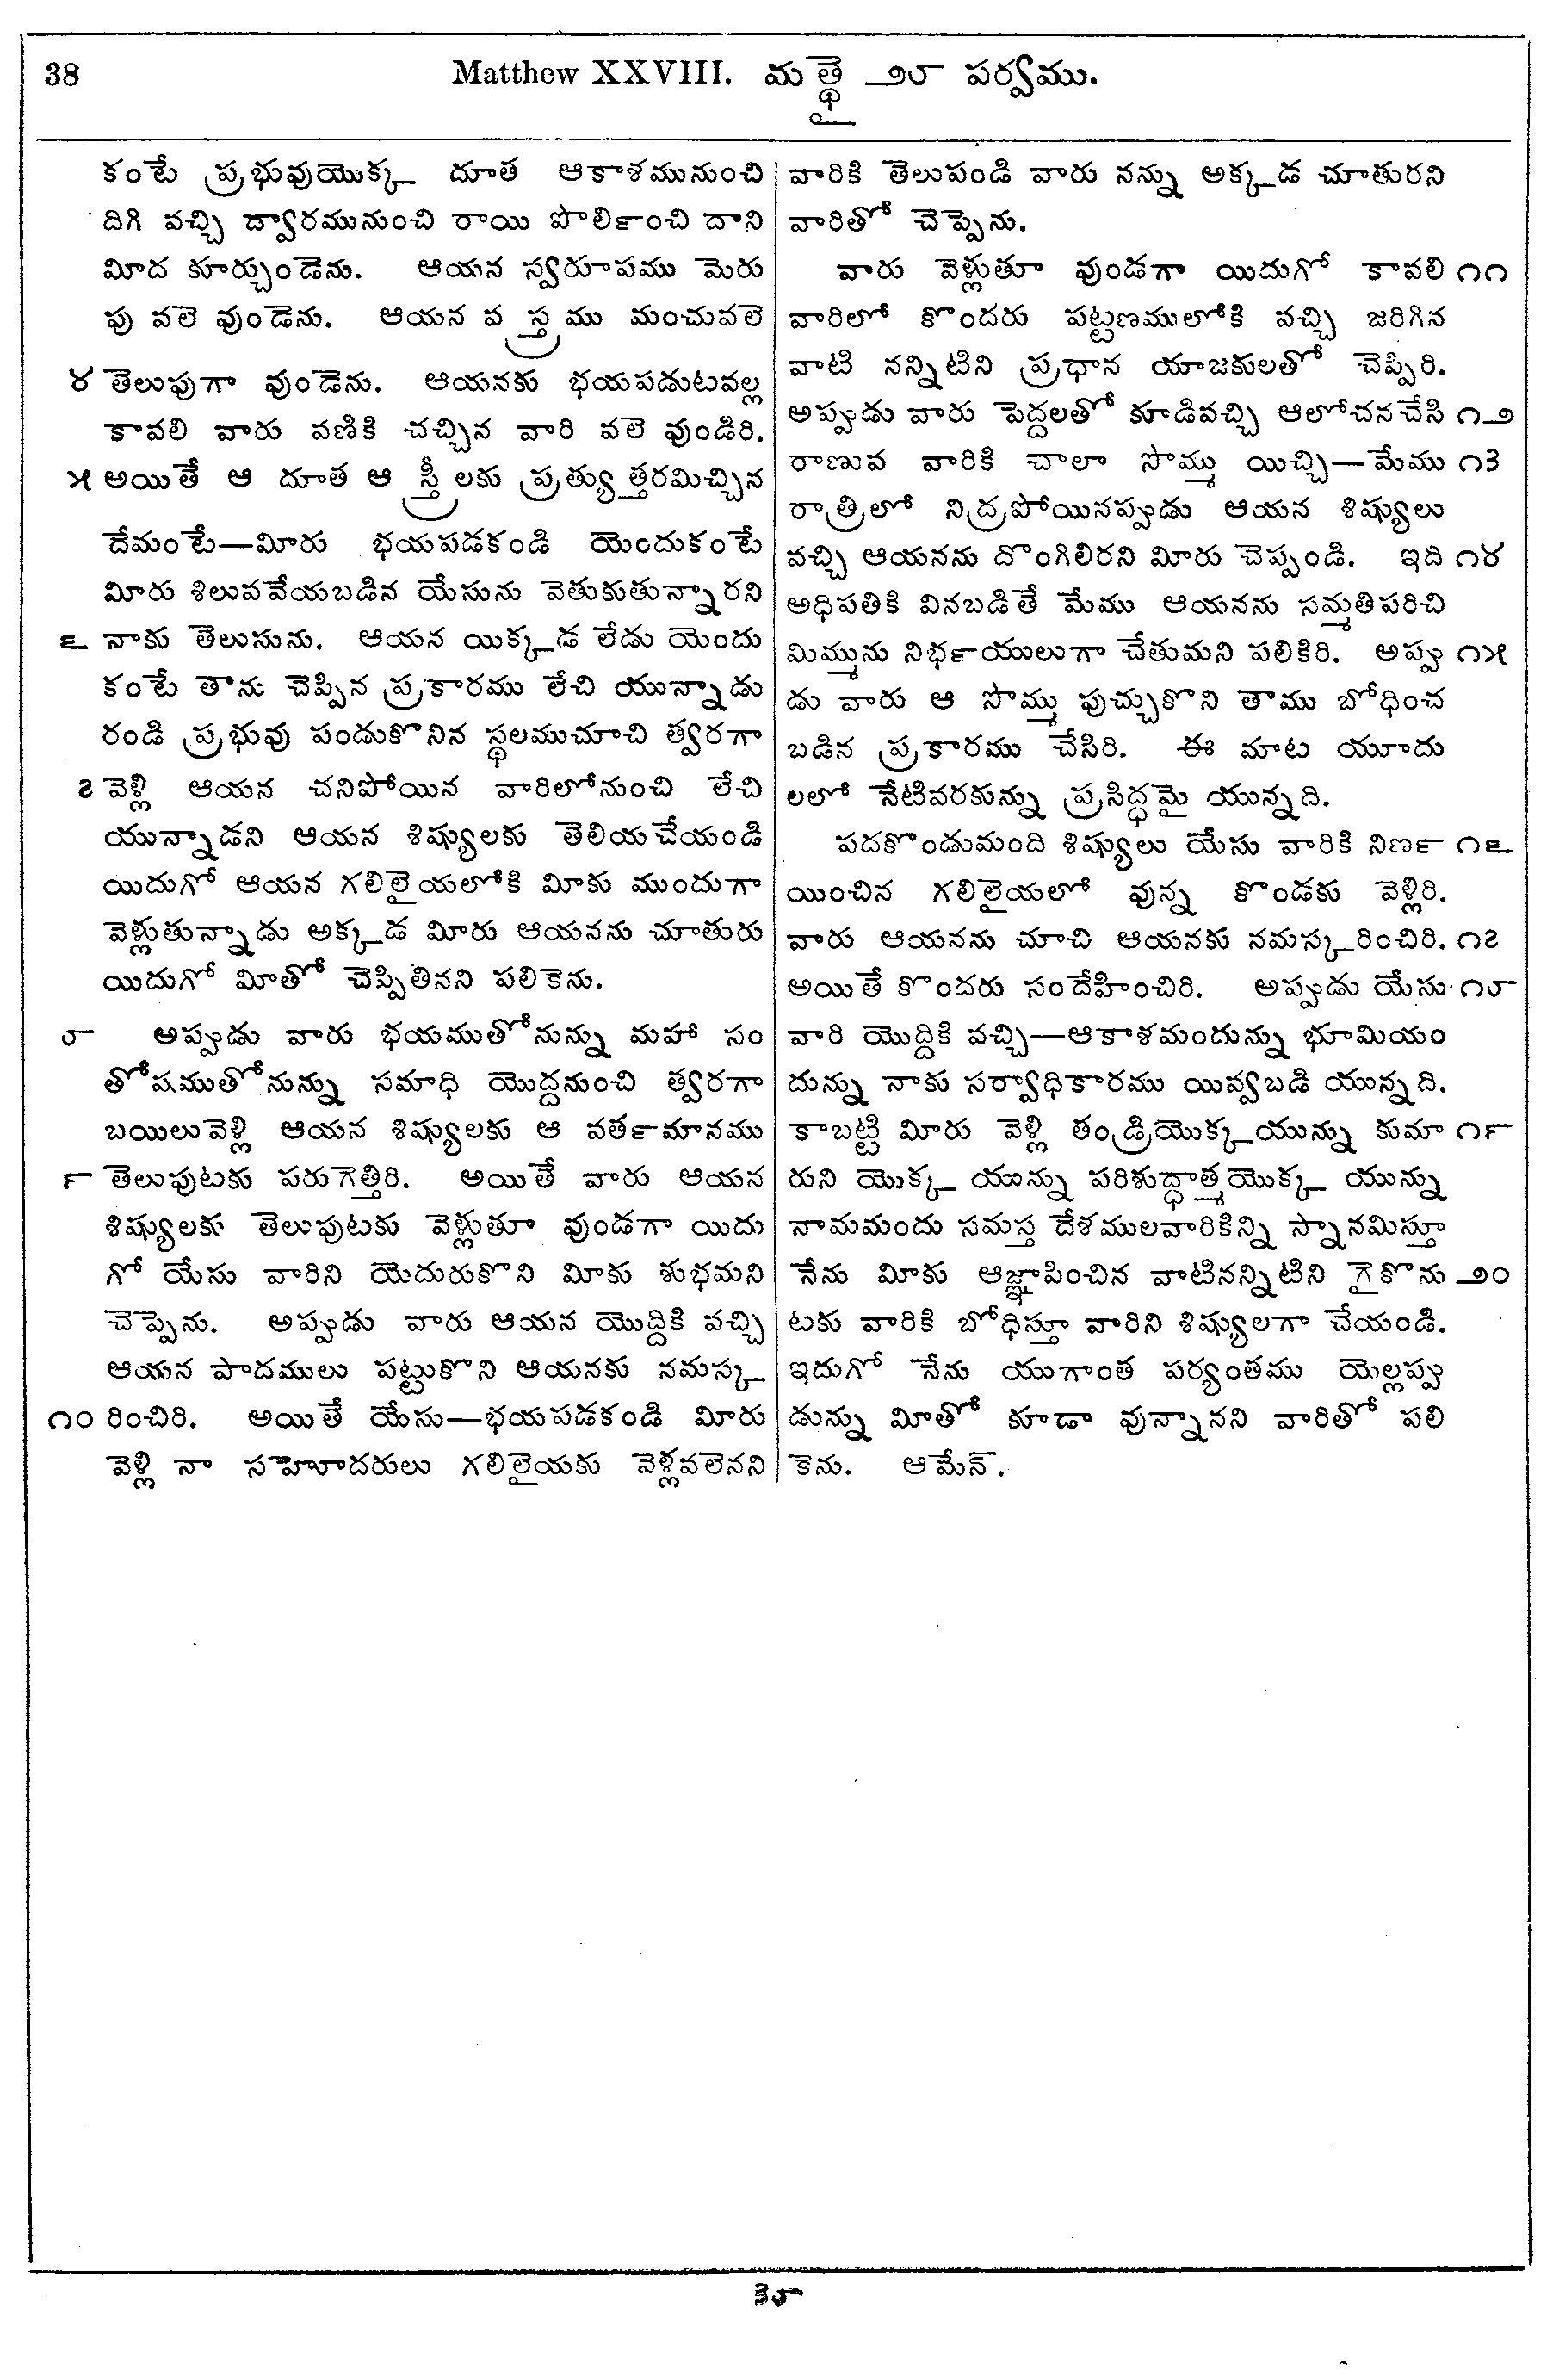 38 Matthew XXVIII. మత్థై ౨౮ పర్వము.
కంటే ప్రభువుయొక్క దూత ఆకాశమునుంచి
దిగి వచ్చి ద్వారమునుంచి రాయి పొలిర్ంచి దాని
మీద కూర్చుండెను. ఆయన స్వరూపము మెరు
పు వలె వుండెను. ఆయన వస్త్రము మంచువలె
౪ తెలుపుగా వుండెను. ఆయనకు భయపడుటవల్ల
కావలి వారు వణికి చచ్చిన వారి వలె వుండిరి.
౫ అయితే ఆ దూత ఆ స్త్రీలకు ప్రత్యుత్తరమిచ్చిన
దేమంటే—మీరు భయపడకండి యెందుకంటే
మీరు శిలువవేయబడిన యేసును వెతుకుతున్నారని
౬ నాకు తెలుసును. ఆయన యిక్కడ లేడు యెందు
కంటే తాను చెప్పిన ప్రకారము లేచి యున్నాడు
రండి ప్రభువు పండుకొనిన స్థలముచూచి త్వరగా
౭ వెళ్లి ఆయన చనిపోయిన వారిలోనుంచి లేచి
యున్నాడని ఆయన శిష్యులకు తెలియచేయండి
యిదుగో ఆయన గలిలైయలోకి మీకు ముందుగా
వెళ్లుతున్నాడు అక్కడ మీరు ఆయనను చూతురు
యిదుగో మీతో చెప్పితినని పలికెను.
౮ అప్పుడు వారు భయముతోనున్ను మహా సం
తోషముతోనున్ను సమాధి యొద్దనుంచి త్వరగా
బయిలువెళ్లి ఆయన శిష్యులకు ఆ వర్తమానము
౯ తెలుపుటకు పరుగెత్తిరి. అయితే వారు ఆయన
శిష్యులకు తెలుపుటకు వెళ్లుతూ వుండగా యిదు
గో యేసు వారిని యెదురుకొని మీకు శుభమని
చెప్పెను. అప్పుడు వారు ఆయన యొద్దికి వచ్చి
ఆయన పాదములు పట్టుకొని ఆయనకు నమస్క
౧౦ రించిరి. అయితే యేసు—భయపడకండి మీరు
వెళ్లి నా సహోదరులు గలిలైయకు వెళ్లవలెనని
వారికి తెలుపండి వారు నన్ను అక్కడ చూతురని
వారితో చెప్పెను.
వారు వెళ్లుతూ వుండగా యిదుగో కావలి ౧౧
వారిలో కొందరు పట్టణములోకి వచ్చి జరిగిన
వాటి నన్నిటిని ప్రధాన యాజకులతో చెప్పిరి.
అప్పుడు వారు పెద్దలతో కూడివచ్చి ఆలోచనచేసి ౧౨
రాణువ వారికి చాలా సొమ్ము యిచ్చి—మేము ౧౩
రాత్రిలో నిద్రపోయినప్పుడు ఆయన శిష్యులు
వచ్చి ఆయనను దొంగిలిరని మీరు చెప్పండి. ఇది ౧౪
అధిపతికి వినబడితే మేము ఆయనను సమ్మతిపరిచి
మిమ్మును నిర్భయులుగా చేతుమని పలికిరి. అప్పు ౧౫
డు వారు ఆ సొమ్ము పుచ్చుకొని తాము బోధించ
బడిన ప్రకారము చేసిరి. ఈ మాట యూదు
లలో నేటివరకున్ను ప్రసిద్ధమై యున్నది.
పదకొండుమంది శిష్యులు యేసు వారికి నిర్ణ ౧౬
యించిన గలిలైయలో వున్న కొండకు వెళ్లిరి.
వారు ఆయనను చూచి ఆయనకు నమస్కరించిరి. ౧౭
అయితే కొందరు సందేహించిరి. అప్పుడు యేసు ౧౮
వారి యొద్దికి వచ్చి—ఆకాశమందున్ను భూమియం
దున్ను నాకు సర్వాధికారము యివ్వబడి యున్నది.
కాబట్టి మీరు వెళ్లి తండ్రియొక్కయున్ను కుమా ౧౯
రుని యొక్క యున్ను పరిశుద్ధాత్మయొక్క యున్ను
నామమందు సమస్త దేశములవారికిన్ని స్నానమిస్తూ
నేను మీకు ఆజ్ఞాపించిన వాటినన్నిటిని గైకొను ౨౦
టకు వారికి బోధిస్తూ వారిని శిష్యులగా చేయండి.
ఇదుగో నేను యుగాంత పర్యంతము యెల్లప్పు
డున్ను మీతో కూడా వున్నానని వారితో పలి
కెను. ఆమేన్.
౩౮